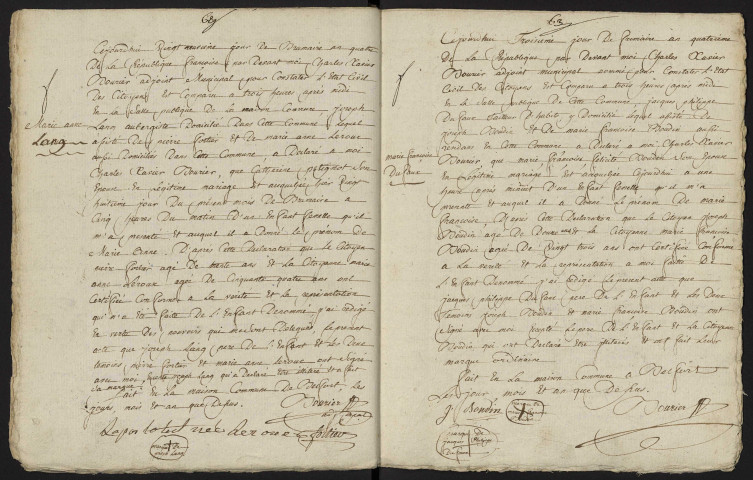 Marie anne
Lang
Cejourdhui Vingt neuvieme jour De Brumaire an quatre
De la Republique francoise, par Devant moi Charles Xavier
Bourier adjoint Municipal pour Constater l'Etat Civil
Des Citoyens est Comparu a trois heures après midi
De la Salle publique De la maison Commune joseph
Lang aubergiste Domicilié Dans Cette Commune, lequel
assisté De et De marie anne Leroue
aussi Domiciliés Dans Cette Commune, a Déclaré a moi
Charles Xavier Bourier, que Catherine petignot Son
Epouse en légitime mariage est accouchée hier Vingt
huitieme jour Du présent mois De Brumaire a
Cinq heures Du matin D'un enfant femelle qu'il
m'a présenté et auquel il a Donné le prénom De
Marie Anne. D'après Cette Déclaration que le Citoyen
agé De trente ans et la Citoyenne marie
anne Leroue agée De Cinquante quatre ans ont
Certifiée Conforme a la vérité et la représentation
qui m'a été faite De l'Enfant Denommé, j'ai rédigé
en vertu Des pouvoirs qui me sont Délégués, le présent
acte que joseph Lang pere De l'Enfant et les Deux
temoins et marie anne leroue ont Signé
avec moi,
Sa marque. fait en la maison Commune De Belfort, les
jours, mois et an que Dessus. Bourier
marie francoise
Du faux
Cejourdhui Troisieme jour De frimaire an quatrieme
De la République, par Devant moi Charles Xavier
Bourier adjoint municipal nommé pour Constater l'Etat
Civil Des Citoyens est Comparu a trois heures après midi
De la Salle publique De Cette Commune, jacque philippe
Du faux Tailleur D'habits, y Domicilié lequel assisté De
joseph Boudin et De marie francoise Boudin aussi
residans en Cette Commune, a Déclaré a moi Charles Xavier
Bourier, que marie francoise felicité Boudin Son Epouse
en Legitime mariage est accouchée Cejourdhui a une
heure après minuit D'un enfant femelle qu'il m'a
présenté et auquel il a Donné le prénom De marie
francoise, D'après Cette Déclaration que le Citoyen joseph
Boudin agé De et la Citoyenne marie francoise
Boudin agée De Vingt trois ans ont Certifiée Conforme
a la vérité et la représentation a moi faite De
l'Enfant Denommé, j'ai rédigé le present acte que
jacque philippe Du faux pere De l'Enfant et les Deux
temoins joseph Boudin et marie francoise Boudin ont
Signé avec moi excepté le pere De l'Enfant et la Citoyenne
Boudin qui ont Declaré être illitérés et ont fait leurs
marque ordinaire
fait en La maison Commune a Belfort
Les jour mois et an que Dessus.
J Boudin Bourier